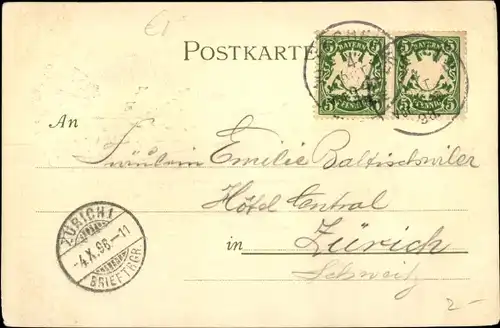 POSTKARTE
BAYERN
5 5
PFENNIG
BAYERN
5 5
PFENNIG
An
Fräulein Emilie Baltischwiler
Hôtel Central
in Zürich
Schweiz
ZÜRICH 1
-4.X.98.-11
BRIEFTRGR.
2-